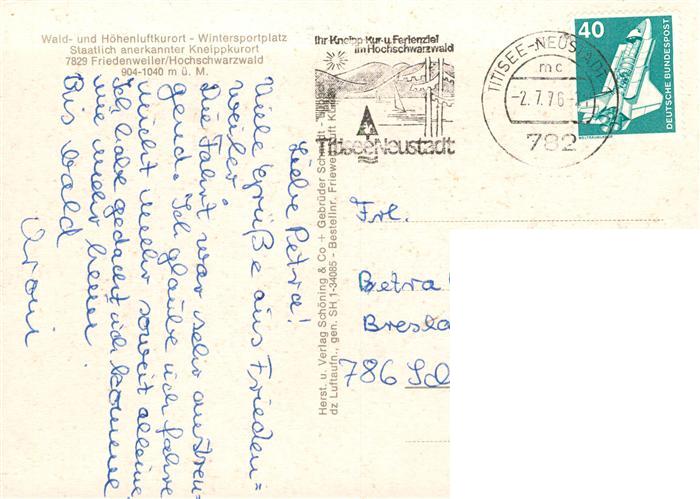 Wald- und Höhenluftkurort - Wintersportplatz
Staatlich anerkannter Kneippkurort
7829 Friedenweiler/Hochschwarzwald
904-1040 m ü. M.
Ihr Kneipp Kur-u. Ferienziel
im Hochschwarzwald
Titisee Neustadt
TITISEE-NEUSTADT
mc
-2.7.76-
782
40
DEUTSCHE BUNDESPOST
Liebe Petra!
Viele Grüße aus Frieden=
weiler.
Die Fahrt war sehr anstren=
gend. Ich glaube ich fahre
nicht mehr soweit alleine
Ich habe gedacht ich komme
nie mehr heim.
Bis bald
Herst. u. Verlag Schöning & Co + Gebrüder Schmidt - Lübeck
dz Luftaufn., gen. SH 1-34085 - Bestellnr. Friewe
Frl.
Petra
Bresla
786 Sch